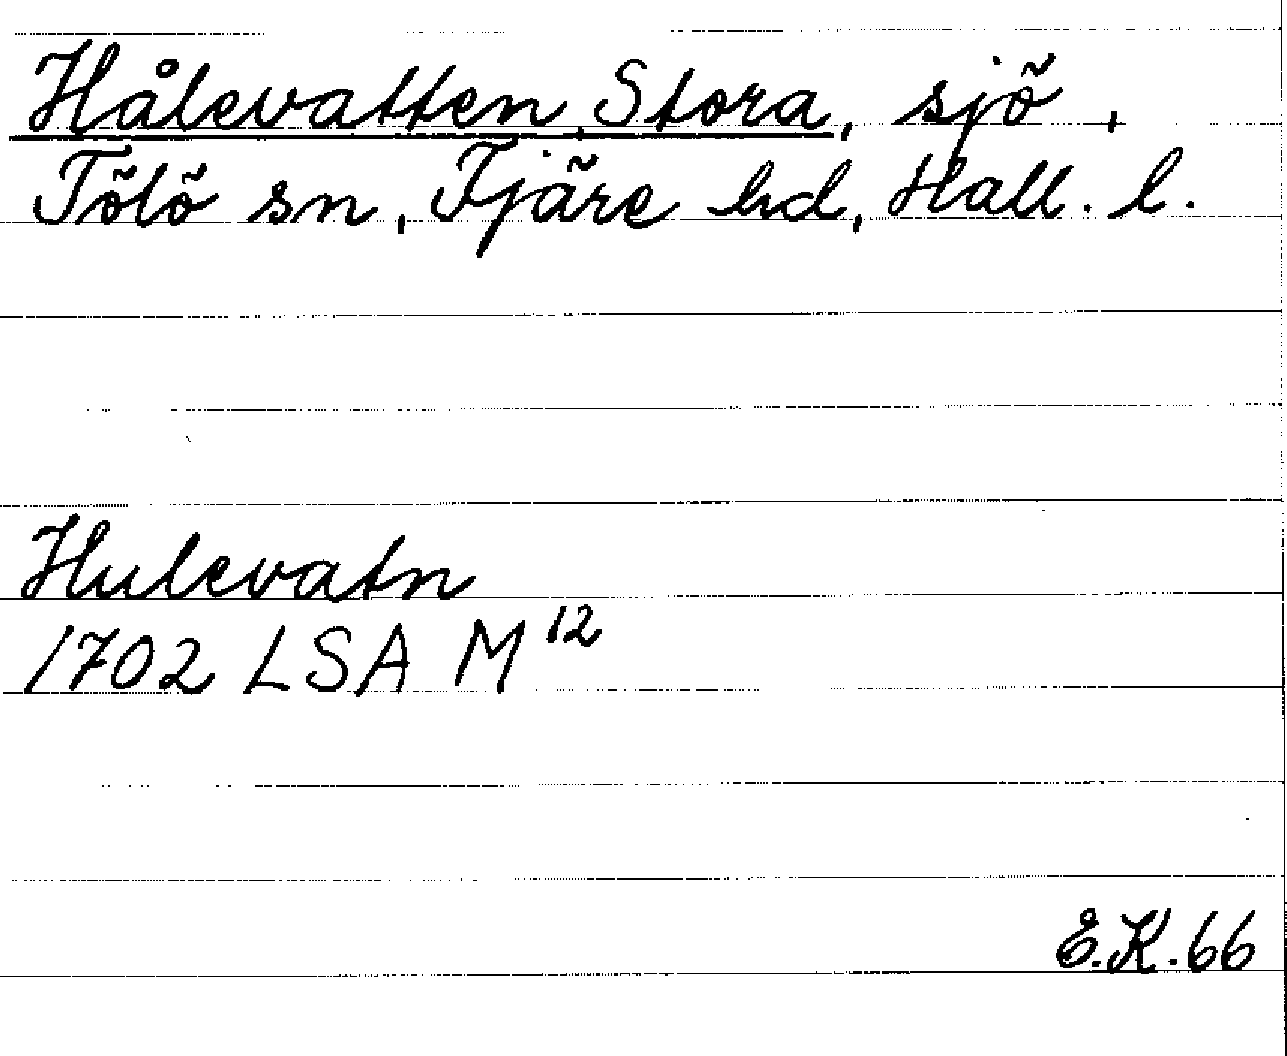 Hålevatten, Stora, sjö,
Tölö sn, Fjäre hd, Hall. l.
Hulevatn
1702 LSA M¹²
E.K. 66